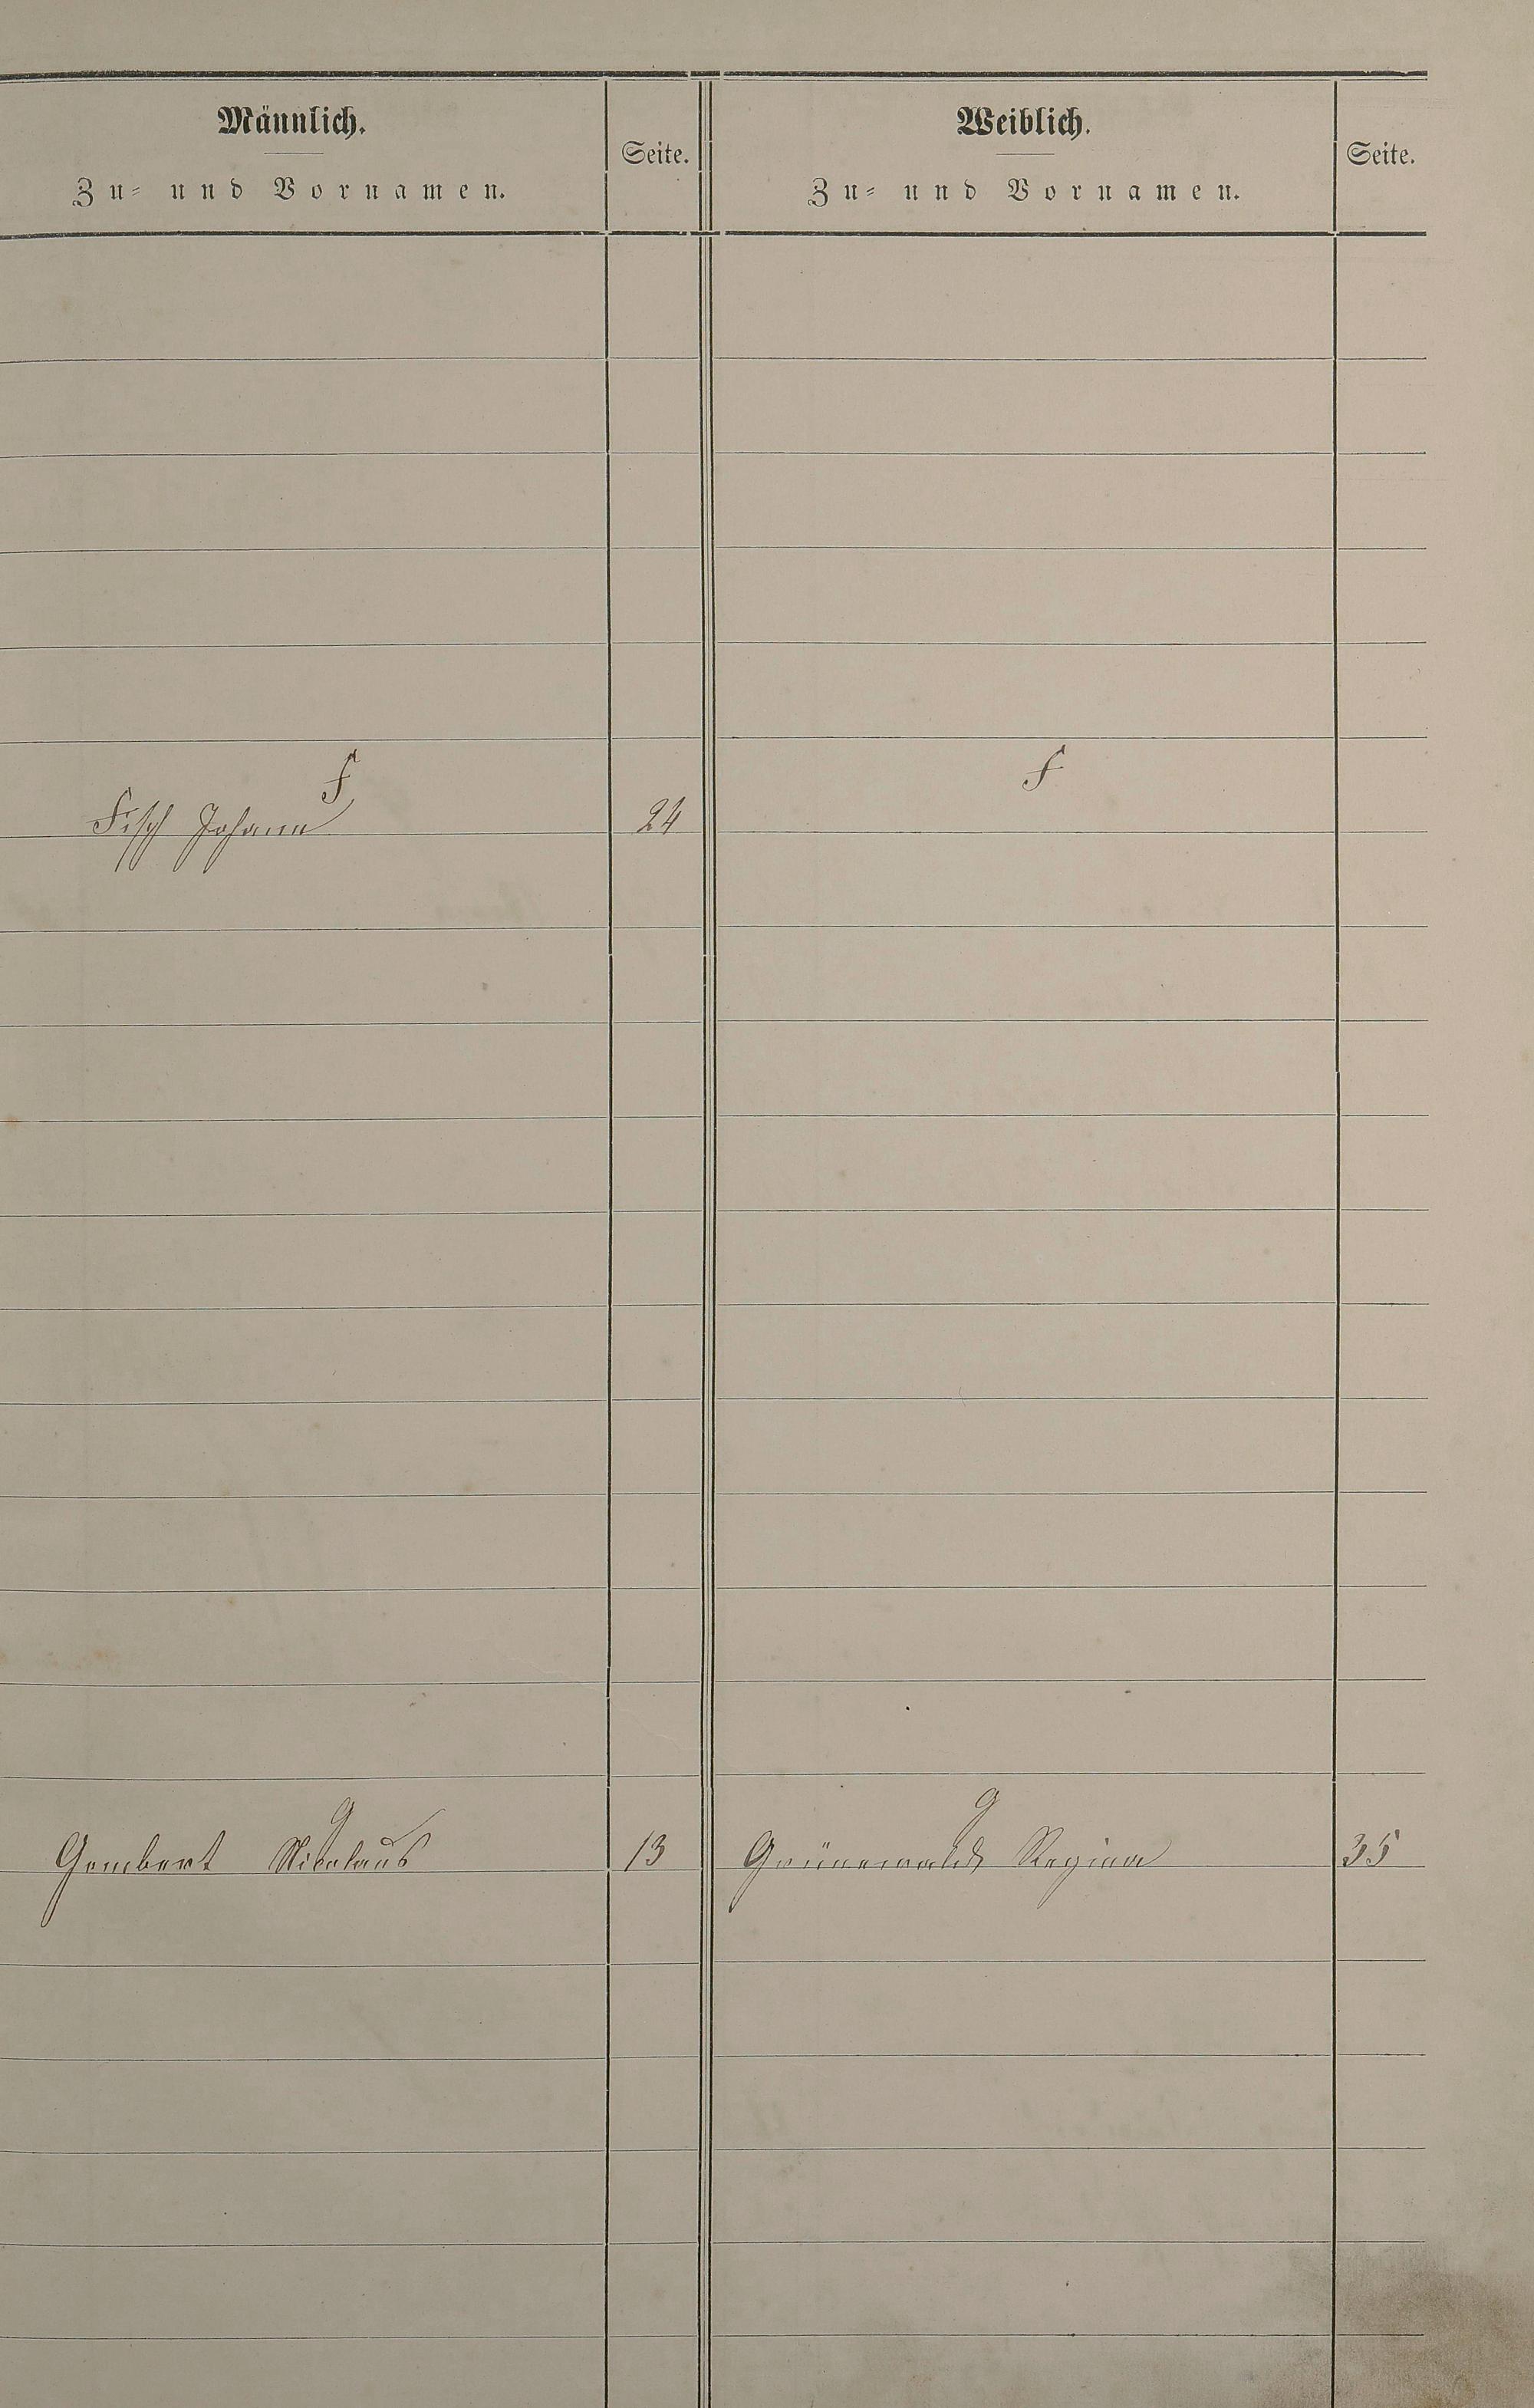 Männlich.
Zu- und Vornamen.
Seite.
Weiblich.
Zu- und Vornamen.
Seite.
F
F
Fisch Johann 24
G
G
Gombert Nikolaus 13 Grünewald Regina 35